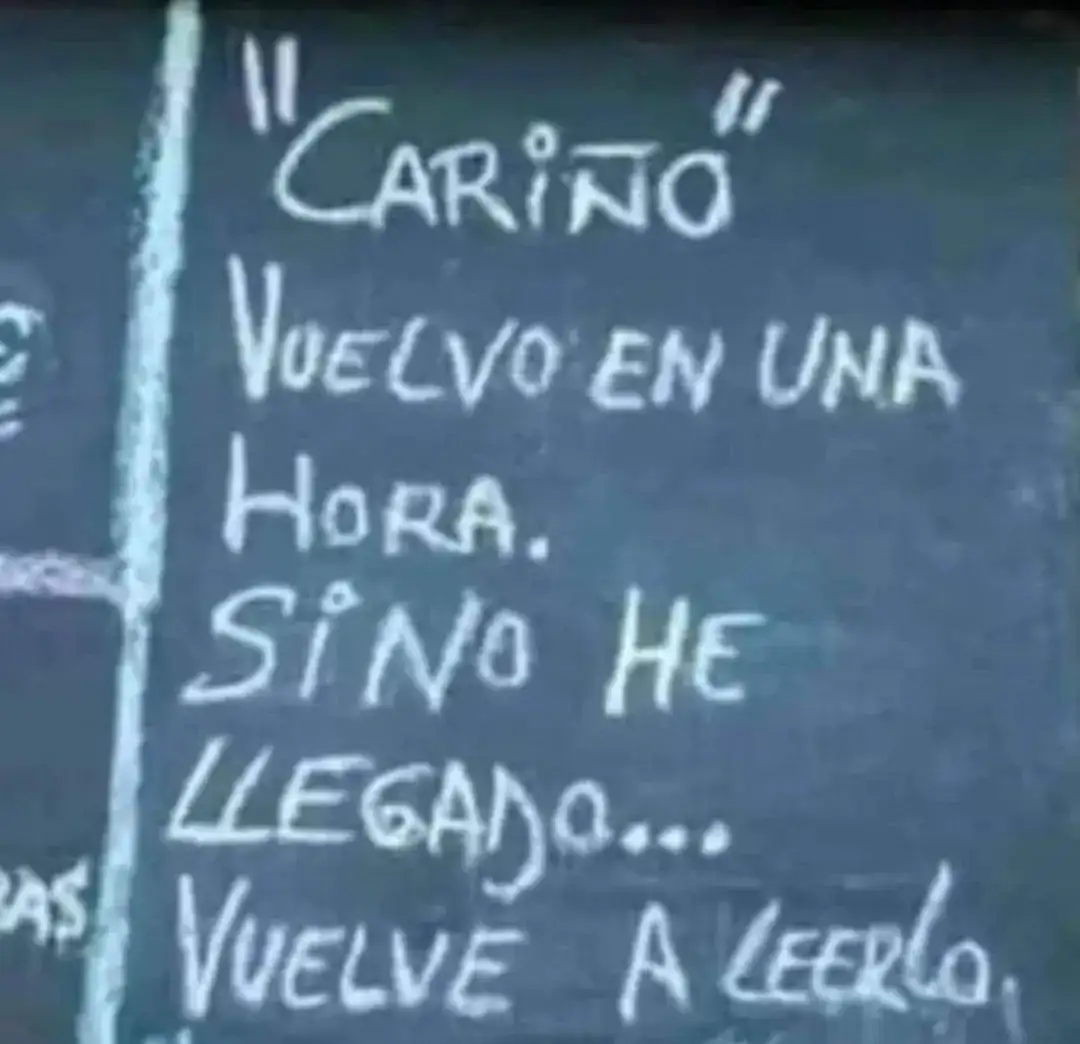 "CARiÑO"
VUELVO EN UNA
HORA.
SiNO HE
LLEGADO...
VUELVE A LEERLO,